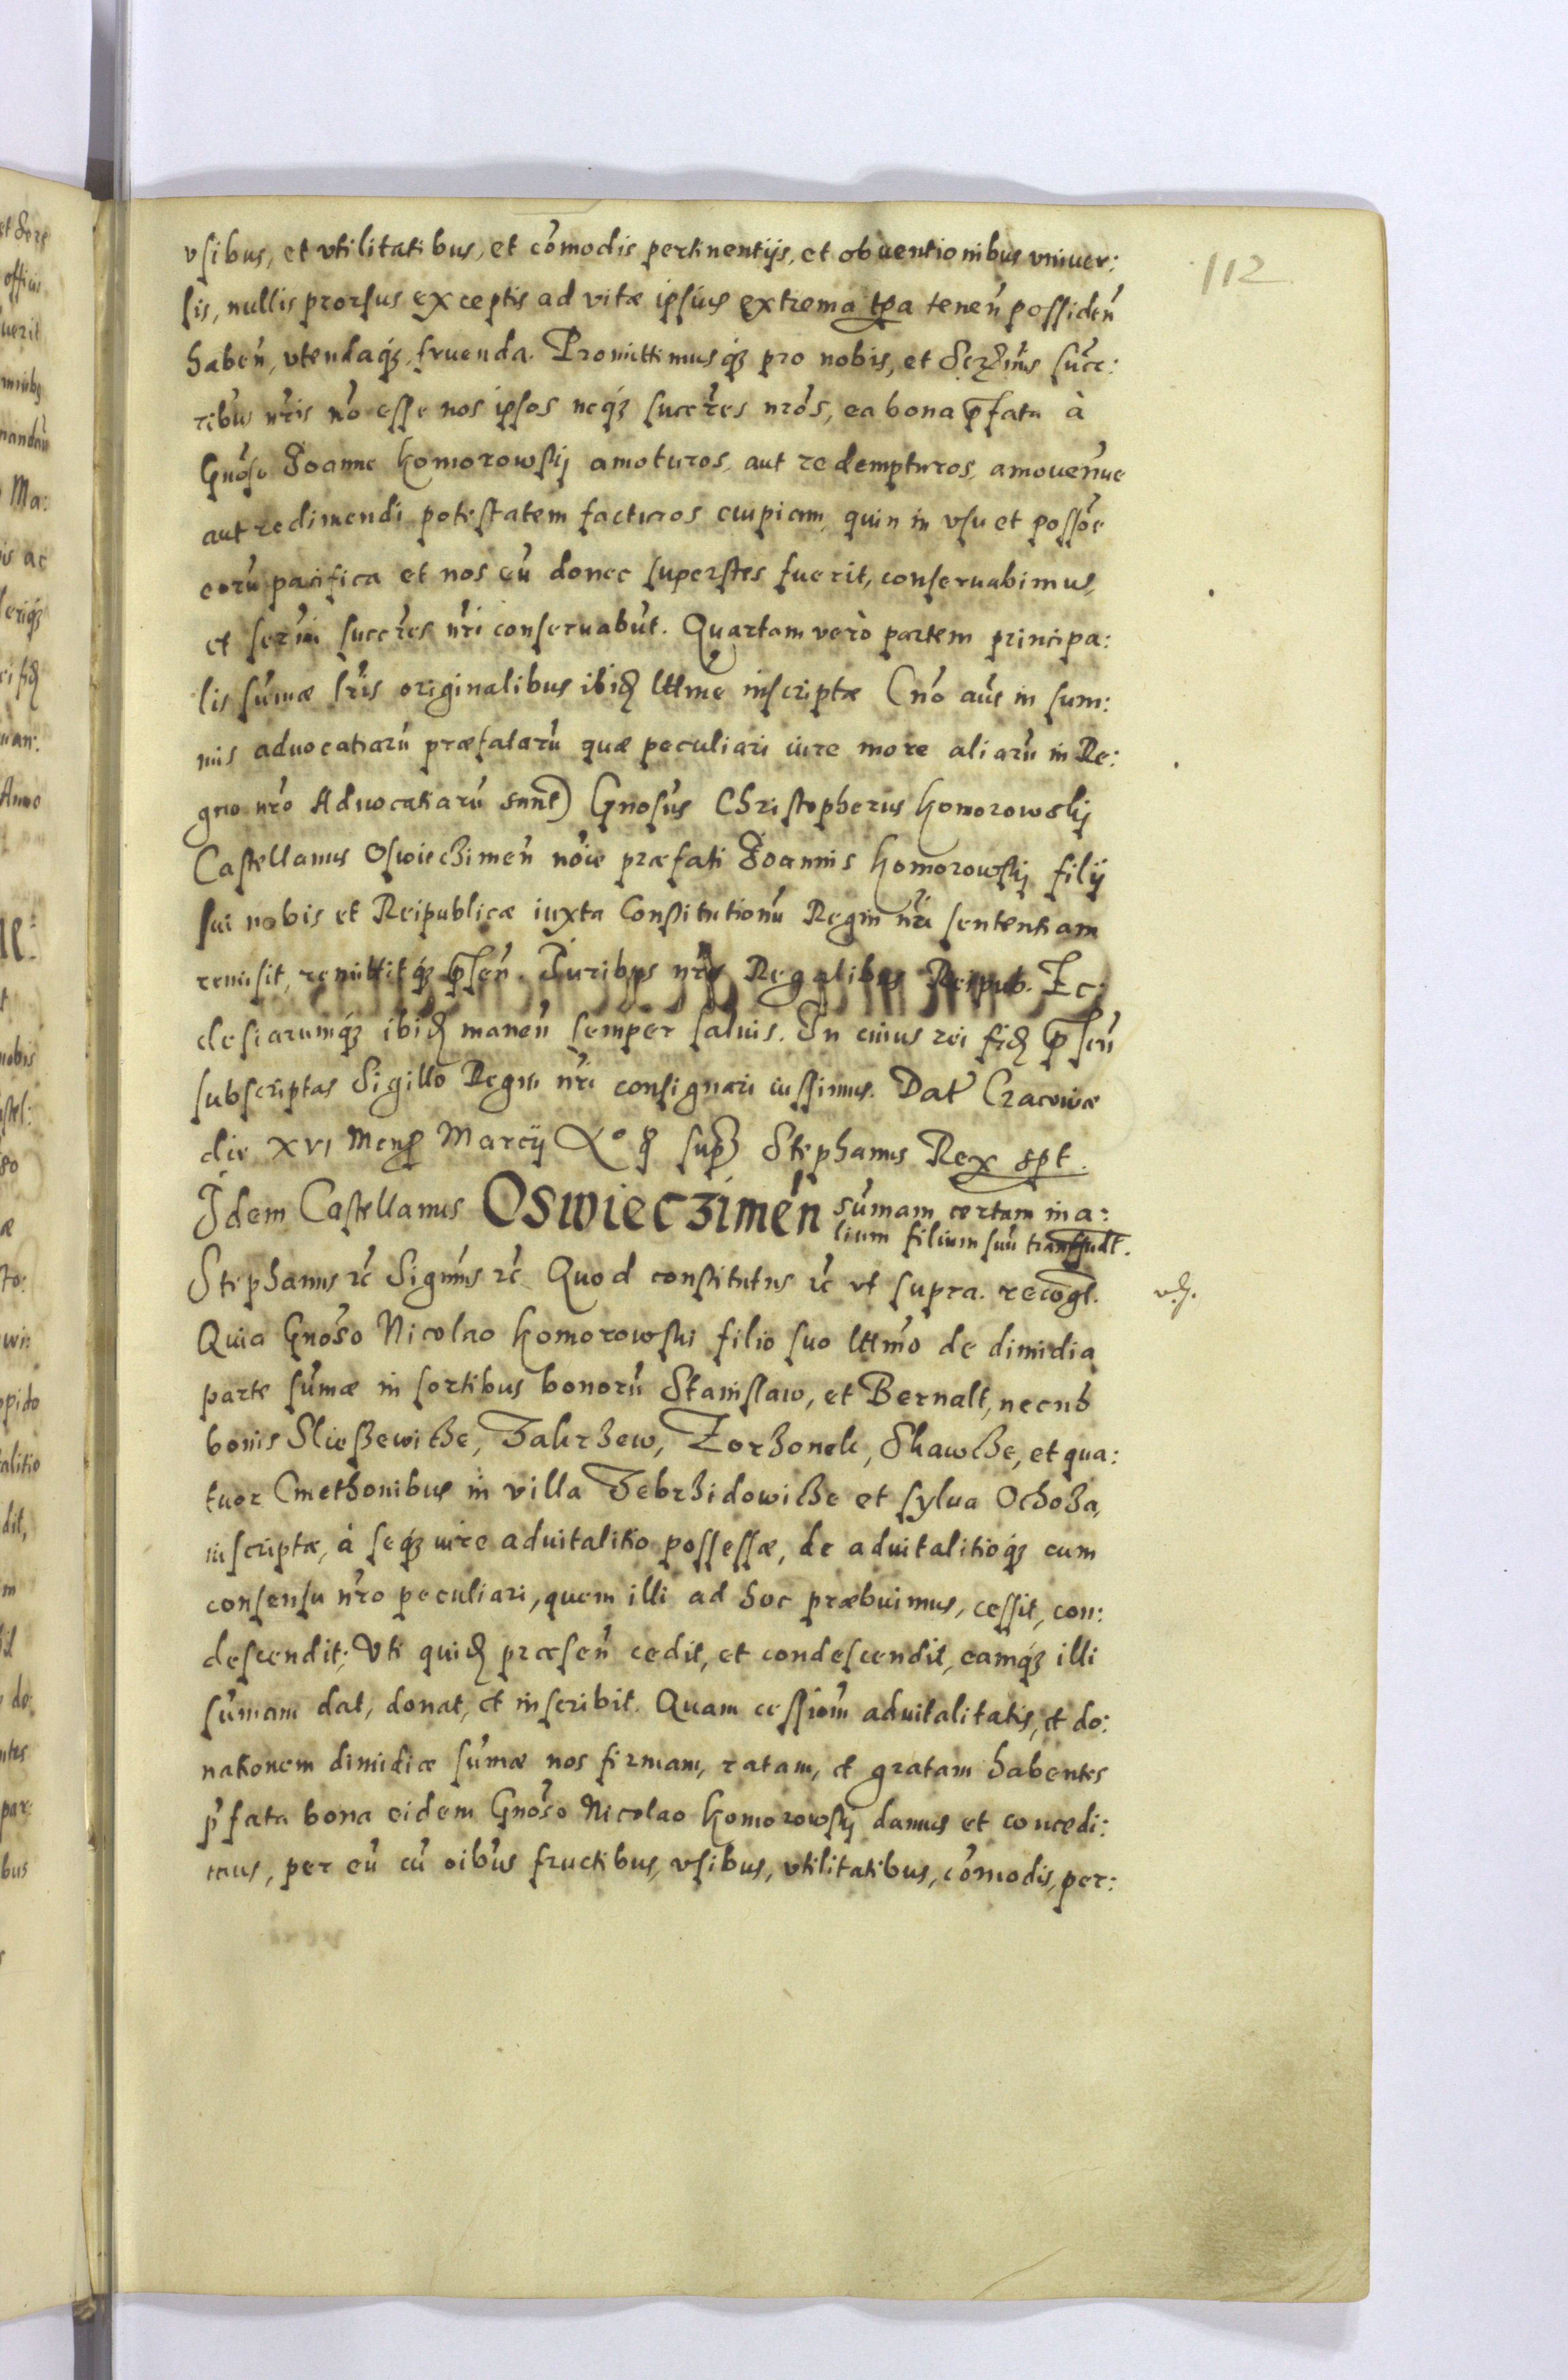 112
vsibus, et vtilitatibus, et cõmodis pertinentijs, et obuentionibus vniuer:
sis, nullis prorsus exceptis ad vitæ ipsius extrema tp̃a teneñ possideñ
habeñ, vtendaq́ꝫ fruenda. Promittimusq́ꝫ pro nobis, et Ser̃mis succ:
ribus nr̃is nõ esse nos ipsos neq́ꝫ succr̃es nrõs, ea bona p̃fata à
Gnõso Joanne Komorowskij amoturos, aut redempturos, amoueñue
aut redimendi potestatem facturos cuipiam, quin in vsu et possõe
eorũ pacifica et nos eũ donec superstes fuerit, conseruabimus,
et ser̃mi succr̃es nr̃i conseruabũt. Quartam verò partem principa:
lis sũmæ lr̃is originalibus ibid̃ lttme inscriptæ (nõ aũt in sum:
mis aduocatiarũ præfatarũ quæ peculiari iure more aliarũ in Re:
gno nrõ Aduocatiarũ sunt) Gnosũs Christopherus Komorowskij
Castellanus Oswieczimeñ nõie præfati Joannis Komorowskij filij
sui nobis et Reipublicæ iuxta Constitutionũ Regni nr̃i sententiam
remisit, remittitq́ꝫ p̃señ. Juribus nr̃is Regalibus Reipub. Ec:
clesiarumq́ꝫ ibid̃ maneñ semper saluis. In cuius rei fid̃ p̃señ
subscriptas Sigillo Regni nr̃i consignari iussimus. Dat̃ Cracouiæ
die XVI Mens̃ Marcij Aº q̃ supꝫ Stephanus Rex spt.
Idem Castellanus Oswieczimeñ sũmam certam in a:
lium filium suũ transfudt.
Stephanus rc̃ Signm̃s rc̃. Quod constitutus rc̃ vt supra. recogt.
Quia Gnõso Nicolao Komorowski filio suo lttmõ de dimidia
parte sũmæ in sortibus bonorũ Stanislaw, et Bernalt, necnõ
bonis Slieszewicze, Zakrzew, Zorzonek, Skawcze, et qua:
tuor Cmethonibus in villa Zebrzidowicze et sylua Ochoza,
inscriptæ, à seq́ꝫ iure aduitalitio possessæ, de aduitalitioq́ꝫ cum
consensu nrõ peculiari, quem illi ad hoc præbuimus, cessit, con:
descendit; Vti quid̃ præseñ cedit, et condescendit, eamq́ꝫ illi
sũmam dat, donat, et inscribit. Quam cessiom̃ aduitalitatis, et do:
nationem dimidiæ sũmæ nos firmam, ratam, et gratam habentes
p̃fata bona eidem Gnõso Nicolao Komorowskij damus et concedi:
mus, per eũ cũ oibũs fructibus, vsibus, vtilitatibus, cõmodis, per: